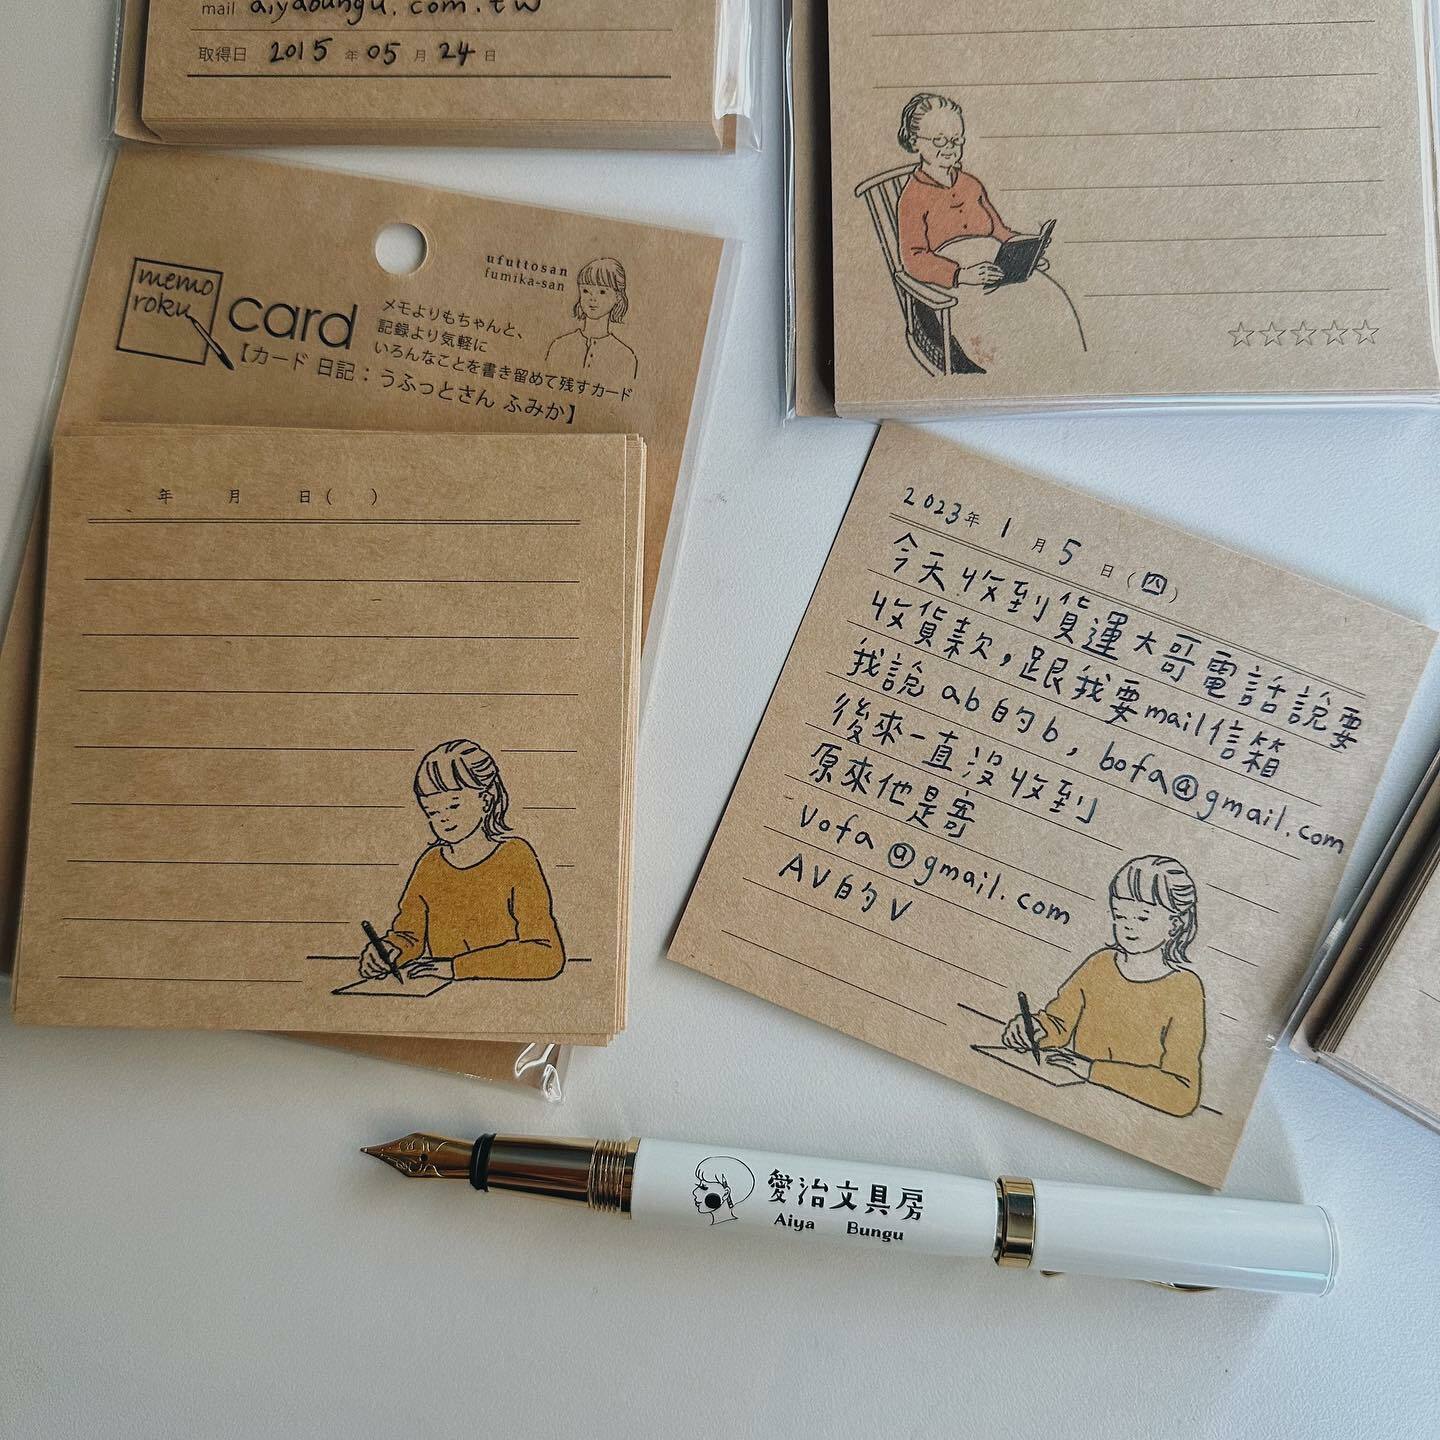 mail aiyabungu.com.tw
取得日 2015 年 05 月 24 日
☆☆☆☆☆
memo
roku
card
ufuttosan
fumika-san
メモよりもちゃんと、
記録より気軽に
いろんなことを書き留めて残すカード
【カード 日記：うふっとさん ふみか】
年 月 日( )
2023年 1月5日(四)
今天收到貨運大哥電話說要
收貨款，跟我要mail信箱
我說ab的b，bofa@gmail.com
後來一直沒收到
原來他是寄
vofa@gmail.com
AV的V
愛治文具房
Aiya Bungu